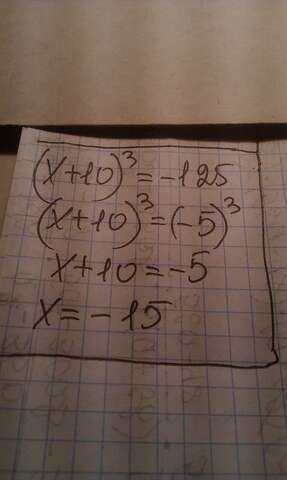 (x+10)³=-125
(x+10)³=(-5)³
x+10=-5
x=-15